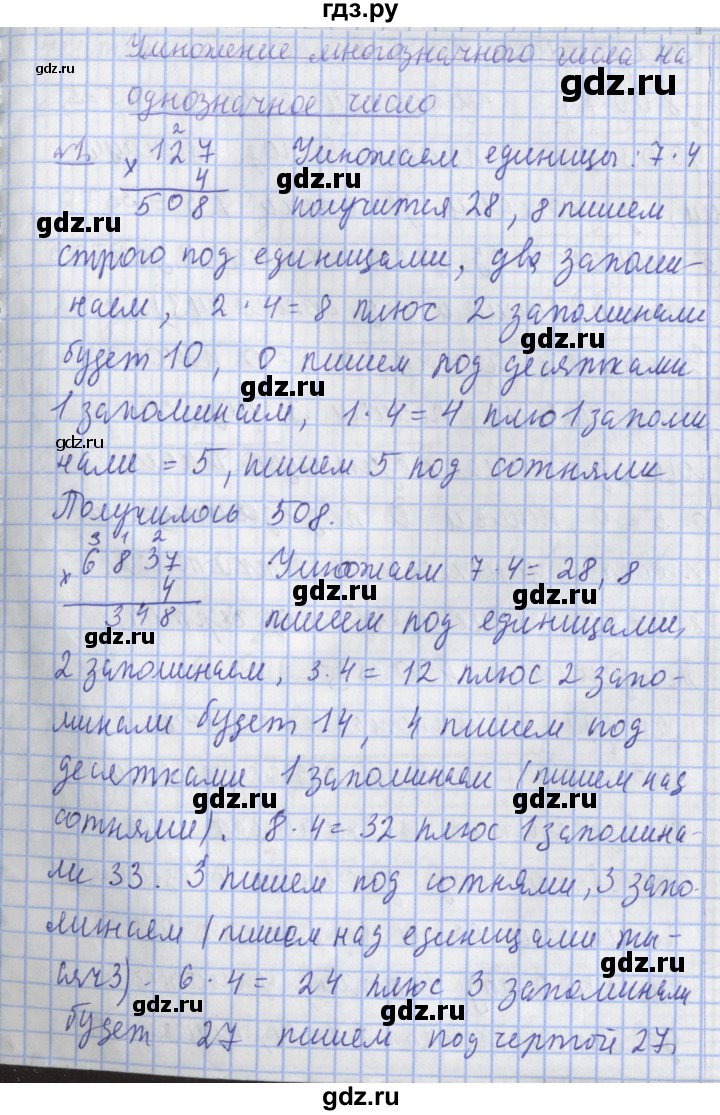 гдз.ру
Умножение многозначного числа на
gdz.ru
gdz.ru
однозначное число
2
№1. × 127 Умножаем единицы: 7·4
4 gdz.ru
508 получится 28, 8 пишем
gdz.ru
gdz.ru
строго под единицами, два запоми-
наем, 2·4=8 плюс 2 запоминали
gdz.ru
будет 10, 0 пишем под десятками
gdz.ru
1 запоминаем, 1·4=4 плю 1 запоми
gdz.ru
gdz.ru
нали = 5, пишем 5 под сотнями
Получилось 508.
3 1 2
× 6837 Умножаем 7·4=28, 8
4 gdz.ru gdz.ru
348 пишем под единицами,
gdz.ru
2 запоминаем, 3·4= 12 плюс 2 запо-
gdz.ru
минали будет 14, 4 пишем под
gdz.ru
десятками 1 запоминаем (пишем над
gdz.ru gdz.ru
сотнями). 8·4=32 плюс 1 запомина-
gdz.ru
ли 33. 3 пишем под сотнями, 3 запо-
gdz.ru
минаем (пишем над единицами ты-
gdz.ru
сяч 3). 6·4= 24 плюс 3 запоминали
gdz.ru
будет 27 пишем под чертой 27,
gdz.ru
gdz.ru